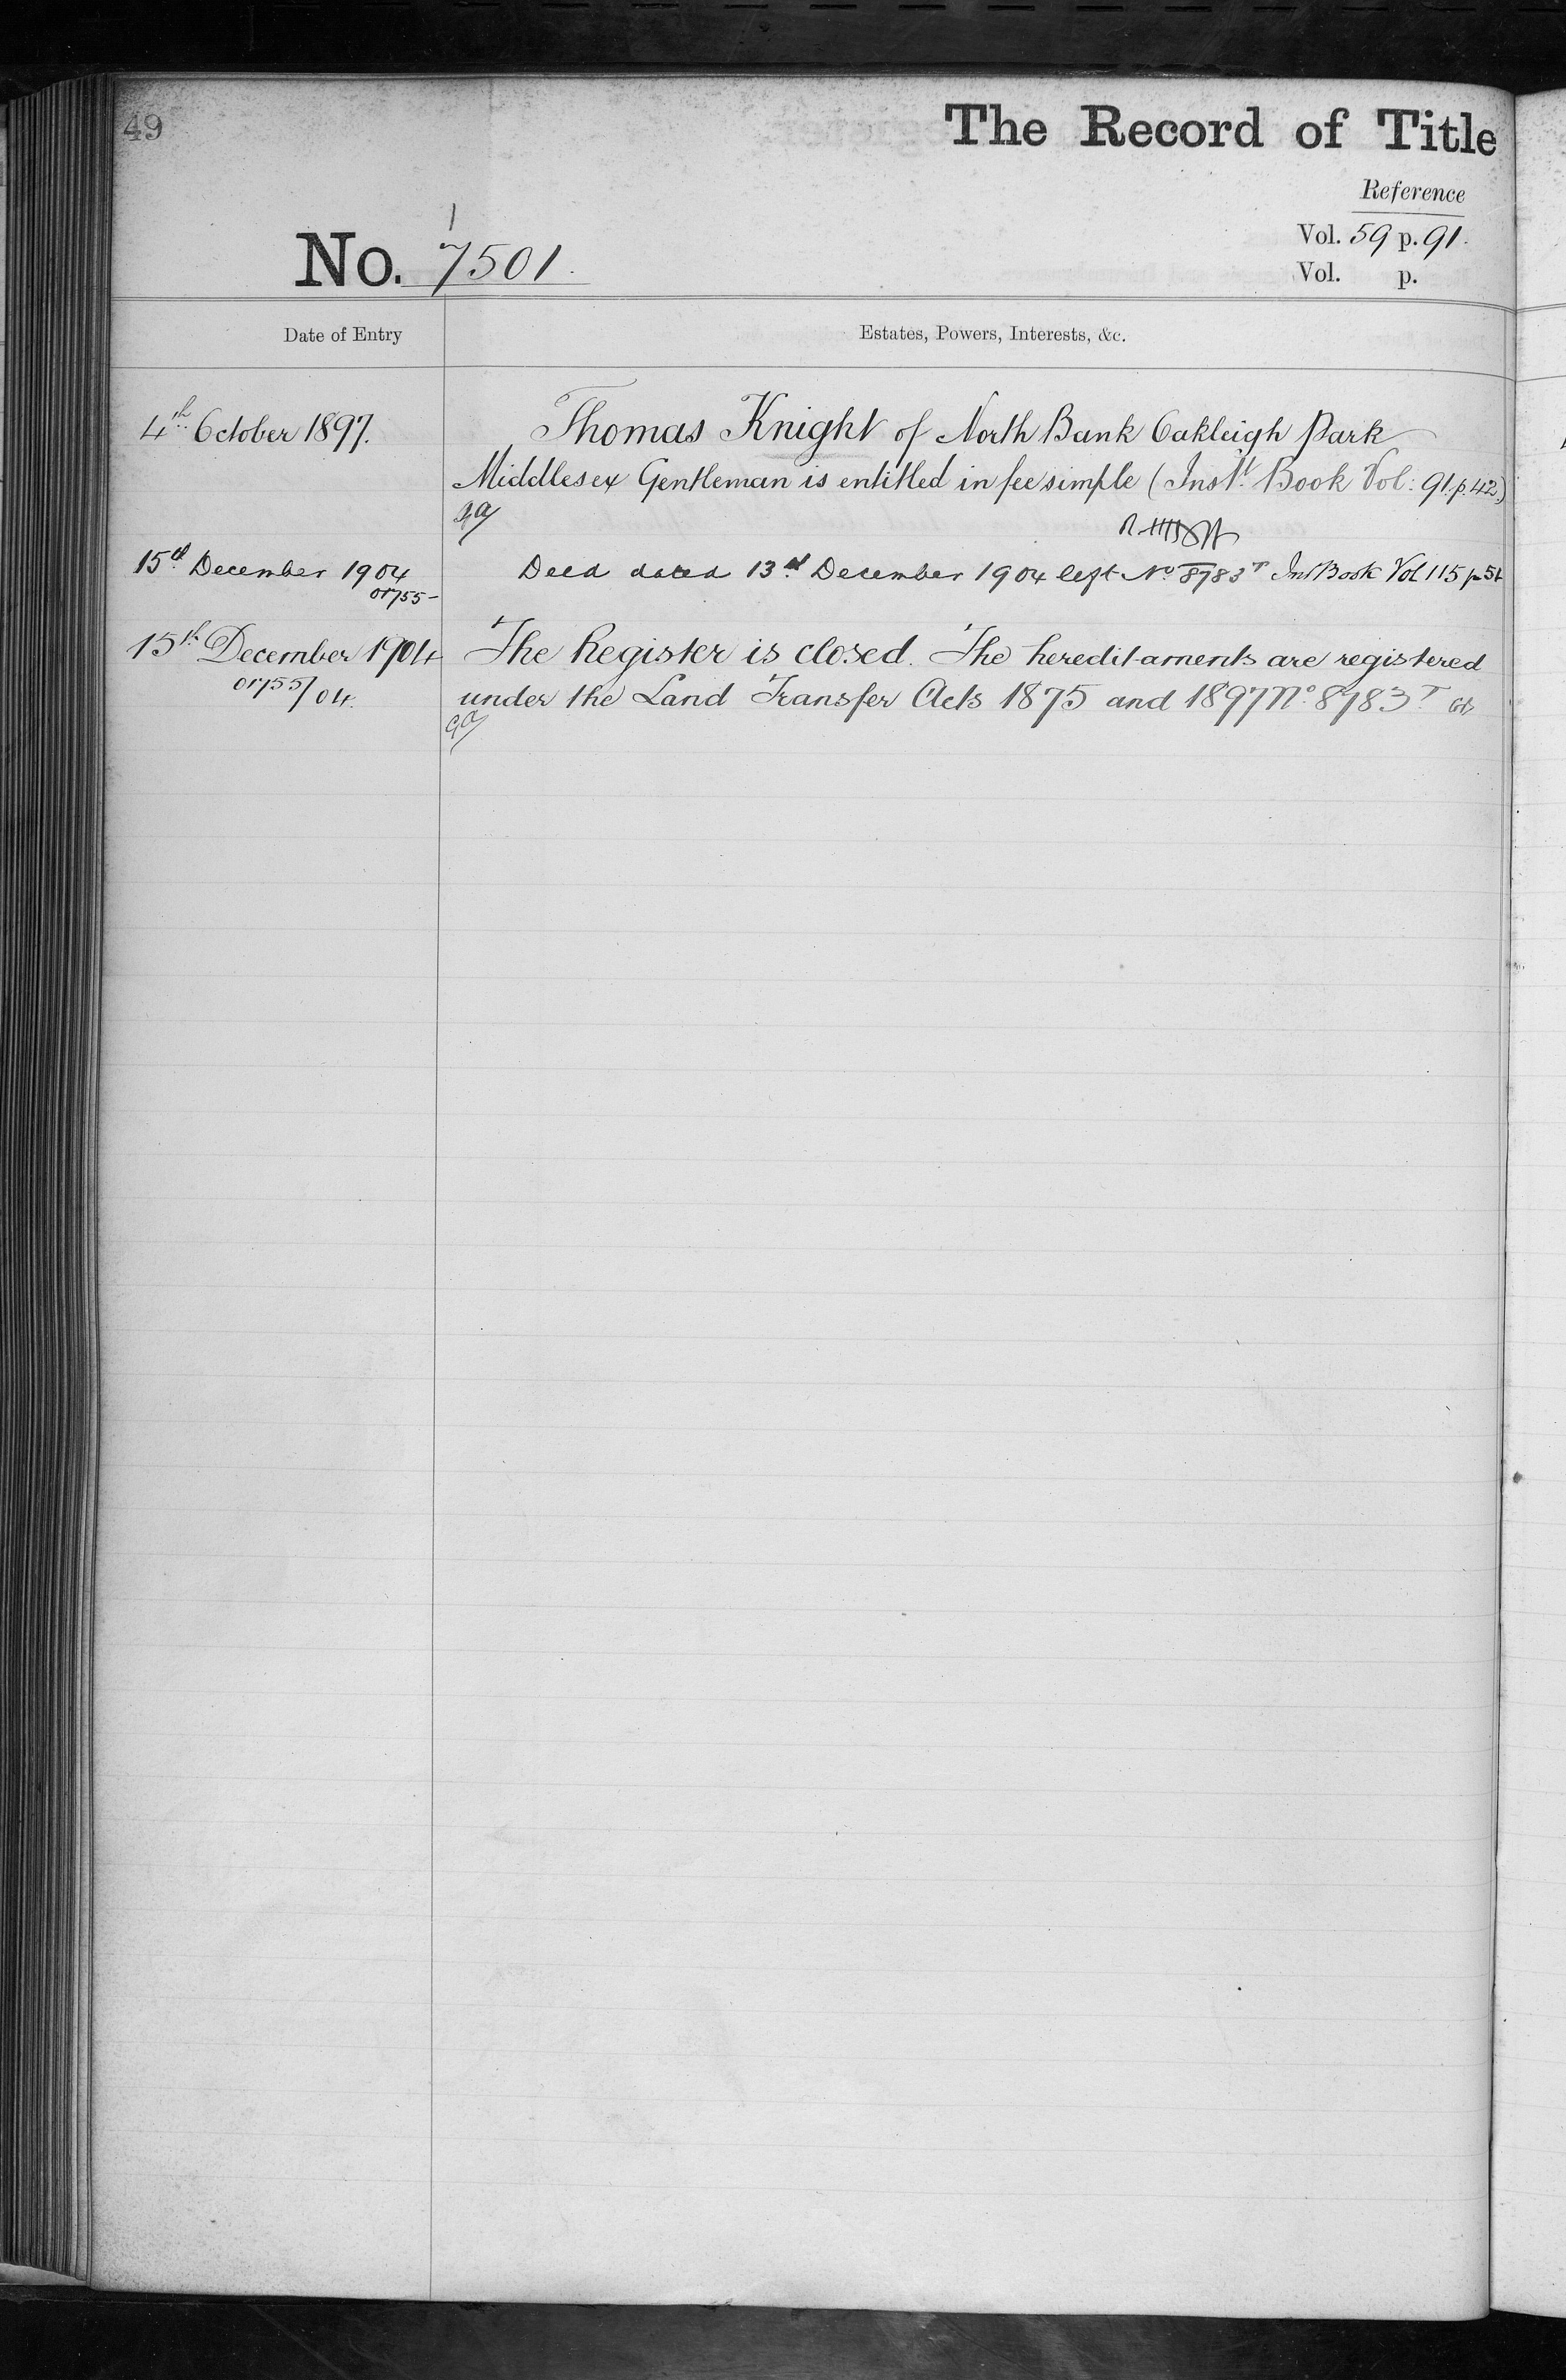 49
The Record of Title
Reference
Vol. 59 p. 91.
Vol. p.
1
No. 7501.
Date of Entry
Estates, Powers, Interests, &c.
4th October 1897.
Thomas Knight of North Bank Oakleigh Park
Middlesex Gentleman is entitled in fee simple (Inst. Book Vol: 91. p. 42)
15th December 1904
01755
Deed dated 13th December 1904 left No 8783T Ins Book Vol 115 p 51
15th December 1904
01755/04.
The Register is closed. The hereditaments are registered
under the Land Transfer Acts 1875 and 1897 No. 8783T